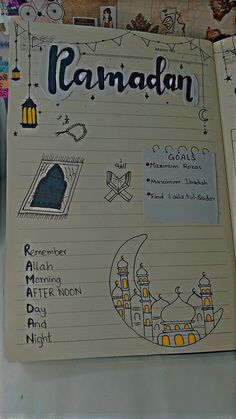 Ramadan
الله
GOALS
Maximum Rozas
Maximum Ibadah
Find Lailia-tul-Qader
Remember
Allah
Morning
AFTER NOON
Day
And
Night